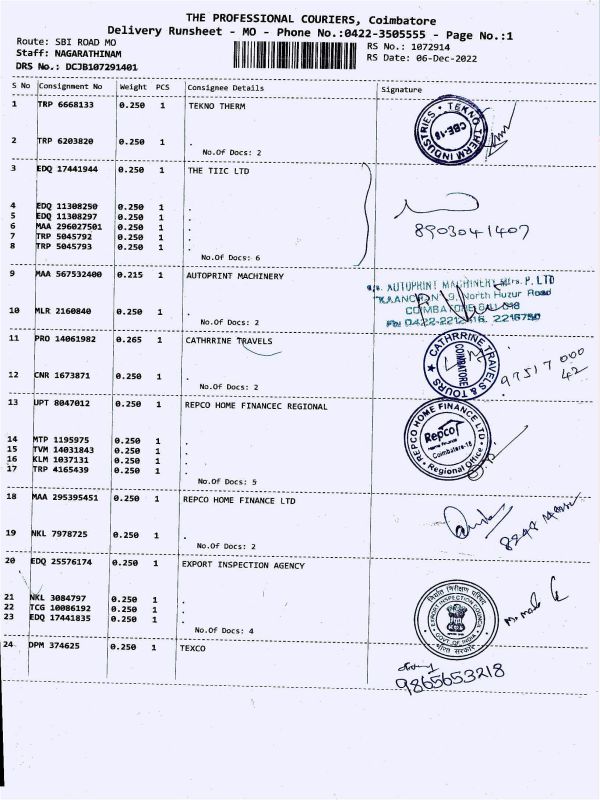 THE PROFESSIONAL COURIERS, Coimbatore
Delivery Runsheet - MO - Phone No.:0422-3505555 - Page No.:1
Route: SBI ROAD MO
Staff: NAGARATHINAM
DRS No.: DCJB107291401
RS No.: 1072914
RS Date: 06-Dec-2022
S No Consignment No Weight PCS Consignee Details Signature
1 TRP 6668133 0.250 1 TEKNO THERM
TEKNO THERM INDUSTRIES
CBE-18
2 TRP 6203820 0.250 1 .
No.Of Docs: 2
3 EDQ 17441944 0.250 1 THE TIIC LTD
4 EDQ 11308250 0.250 1 .
5 EDQ 11308297 0.250 1 .
6 MAA 296027501 0.250 1 .
7 TRP 5045792 0.250 1 .
8 TRP 5045793 0.250 1 .
8903041407
No.Of Docs: 6
9 MAA 567532400 0.215 1 AUTOPRINT MACHINERY
AUTOPRINT MACHINERY Mfrs. P. LTD
9, North Huzur Road
COIMBATORE
10 MLR 2160840 0.250 1 .
No.Of Docs: 2
11 PRO 14061982 0.265 1 CATHRRINE TRAVELS
CATHRRINE TRAVELS & TOURS
COIMBATORE
97517 000
42
12 CNR 1673871 0.250 1 .
No.Of Docs: 2
13 UPT 8047012 0.250 1 REPCO HOME FINANCEC REGIONAL
REPCO HOME FINANCE LTD.
Repco
Home Finance
Coimbatore-18
Regional Office
14 MTP 1195975 0.250 1 .
15 TVM 14031843 0.250 1 .
16 KLM 1037131 0.250 1 .
17 TRP 4165439 0.250 1 .
No.Of Docs: 5
18 MAA 295395451 0.250 1 REPCO HOME FINANCE LTD
19 NKL 7978725 0.250 1 .
No.Of Docs: 2
20 EDQ 25576174 0.250 1 EXPORT INSPECTION AGENCY
निर्यात निरीक्षण परिषद
EXPORT INSPECTION COUNCIL
GOVT. OF INDIA
भारत सरकार
21 NKL 3084797 0.250 1 .
22 TCG 10086192 0.250 1 .
23 EDQ 17441835 0.250 1 .
No.Of Docs: 4
24 DPM 374625 0.250 1 TEXCO
9865653218